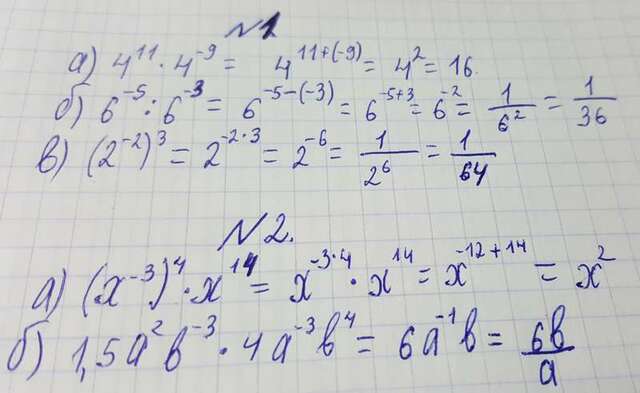 №1
а) 4¹¹ · 4⁻⁹ = 4¹¹⁺⁽⁻⁹⁾ = 4² = 16.
б) 6⁻⁵ : 6⁻³ = 6⁻⁵⁻⁽⁻³⁾ = 6⁻⁵⁺³ = 6⁻² = 1/6² = 1/36
в) (2⁻²)³ = 2^(-2·3) = 2⁻⁶ = 1/2⁶ = 1/64
№2.
а) (x⁻³)⁴ · x¹⁴ = x^(-3·4) · x¹⁴ = x⁻¹²⁺¹⁴ = x²
б) 1,5a²b⁻³ · 4a⁻³b⁴ = 6a⁻¹b = 6b/a